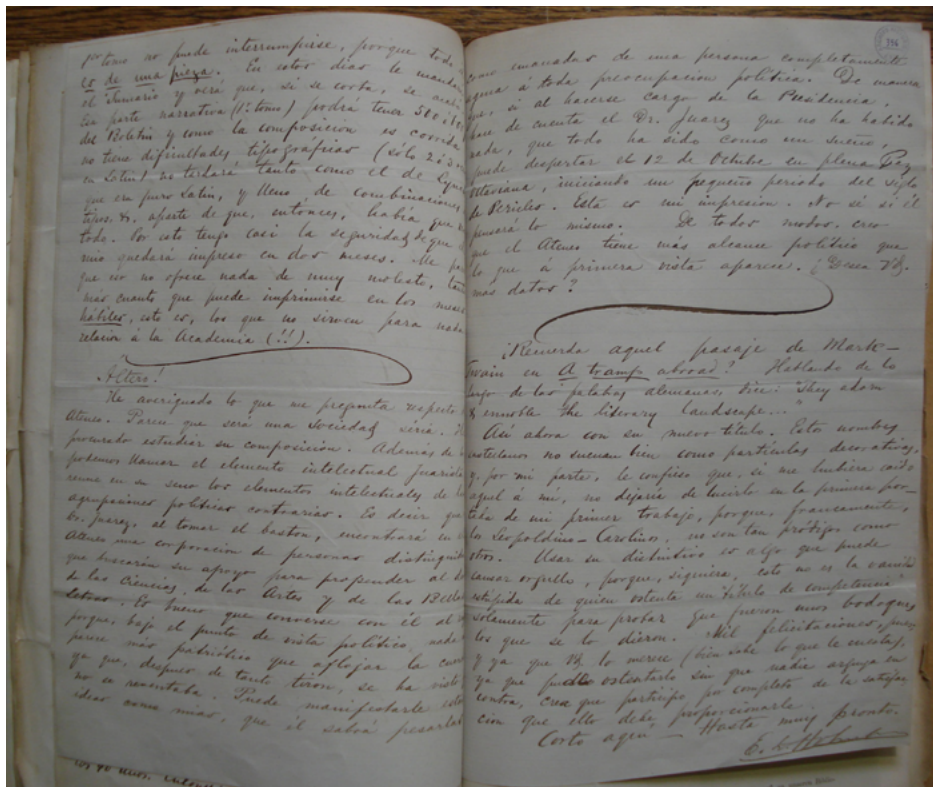 1er tomo no puede interrumpirse, porque todo
es de una pieza. En estos dias le mandaré
el Anuario y verá que, si se corta, se acaba
En parte narrativa (1r tomo) podrá tener 500 á
del Boletin y como la composicion es corrida
no tiene dificultades tipográficas (sólo 2 ó 3
en Latin) no tardará tanto como el de
que era puro Latin, y lleno de combinaciones
tipos. &, aparte de que, entónces, habia que
todo. Por esto tengo casi la seguridad de que
mio quedará impreso en dos meses. Me
que no ofrece nada de muy molesto,
más cuanto que puede imprimirse en los meses
hábiles, esto es, los que no sirven para nada
relacion á la Academia (!!).
Altro!
He averiguado lo que me pregunta respecto
Ateneo. Parece que será una Sociedad séria.
procurado estudiar su composicion. Además de
podemos llamar el elemento intelectual Juarista
reune en su seno los elementos intelectuales de
agrupaciones políticas contrarias. Es decir que
Dr. Juarez, al tomar el baston, encontrará en
Ateneo una corporacion de personas distinguidas
que buscarán su apoyo para propender al
de las Ciencias, de las Artes y de las Bellas
Letras. Es bueno que converse con él
porque, bajo el punto de vista político, nada
parece más patriótico que aflojar la
ya que, despues de tanto tiron, se ha visto
no se reventaba. Puede manifestarle estas
ideas como mias, que él sabrá pesarlas
194
como emanadas de una persona completamente
agena á toda preocupacion política. De manera
que, si al hacerse cargo de la Presidencia,
hace de cuenta el Dr. Juarez que no ha habido
nada, que todo ha sido como un sueño,
puede despertar el 12 de Octubre en plena Paz
Octaviana, iniciando un pequeño periodo del siglo
de Pericles. Esta es mi impresion. No sé si él
pensará lo mismo. De todos modos, creo
que el Ateneo tiene más alcance político que
lo que á primera vista aparece. ¿Desea Vd.
más datos?
¿Recuerda aquel pasaje de Mark-
Twain en A tramp abroad? Hablando de lo
largo de las palabras alemanas, dice: "They adorn
& ennoble the literary landscape..."
Así ahora con su nuevo título. Estos nombres
castellanos no suenan bien como partículas decorativas,
y, por mi parte, le confieso que, si me hubiera caido
aquel á mí, no dejaria de lucirlo en la primera por-
tada de mi primer trabajo, porque, francamente,
los Leopoldino-Carolinos, no son tan pródigos como
otros. Usar su distintivo es algo que puede
causar orgullo, porque, siquiera, esto no es la vanidad
estúpida de quien ostenta un título de competencia
solamente para probar que fueron unos bodoques
los que se lo dieron. Mil felicitaciones, pues,
y ya que Vd. lo merece (bien sabe lo que le cuesta),
ya que puede ostentarlo sin que nadie arguya en
contra, crea que participo por completo de la satisfac
cion que ello debe proporcionarle.
Corto aquí — Hasta muy pronto.
E. L. Holmberg